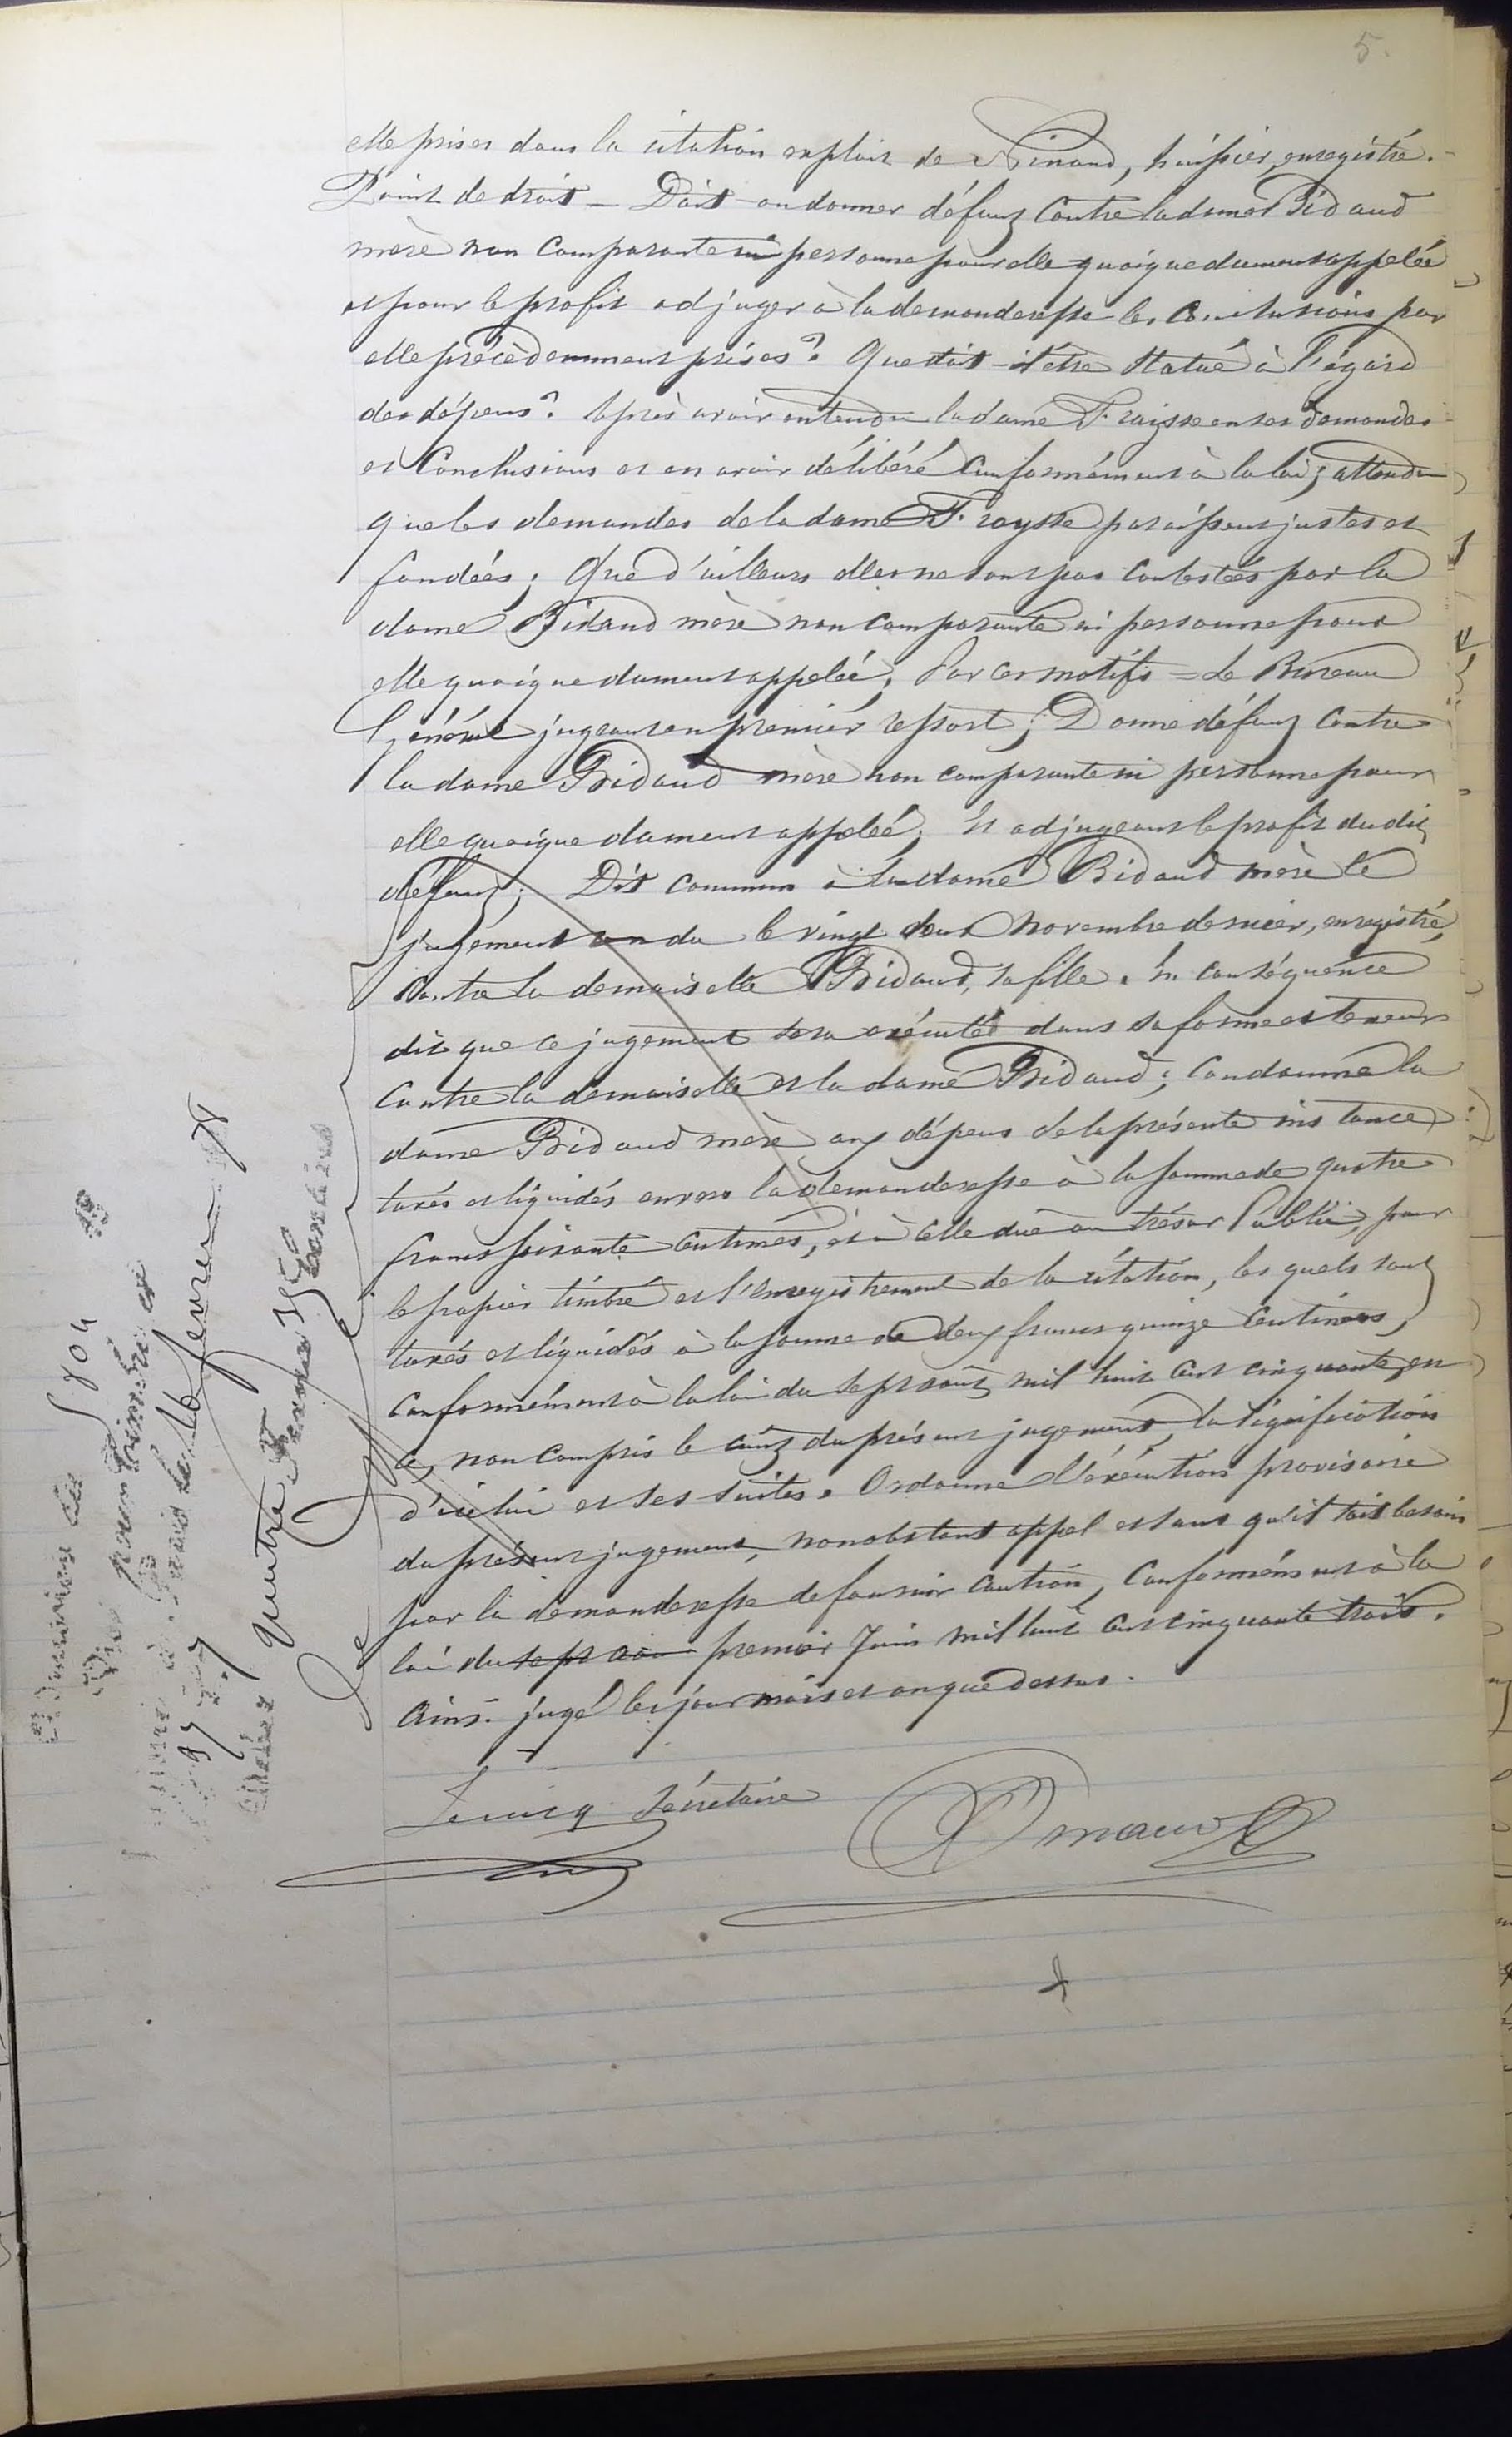 5.
elle prises dans la citation exploit de Ninaud, huissier, enregistré.
Point de droit – Doit-on donner défaut contre la dame Bidaud
mère non comparante ni personne pour elle quoique dument appelée
et pour le profit adjuger à la demanderesse les conclusions par
elle précèdemment prises? Que doit-il être statué à l'égard
des dépens? Après avoir entendu la dame Fraysse en ses demandes
et conclusions et en avoir délibéré conformément à la loi; attendu
que les demandes de la dame Fraysse paraissent justes et
fondées; Que d'ailleurs elles ne sont pas contestées par la
dame Bidaud mère non comparante ni personne pour
elle quoique dument appelée; Par ces motifs = Le Bureau
Général jugeant en premier ressort; Donne défaut contre
la dame Bidaud mère non comparante ni personne pour
elle quoique dument appelée; Et adjugeant le profit dudit
défaut; Dit commun à la dame Bidaud mère le
jugement rendu le vingt deux Novembre dernier, enregistré,
contre la demoiselle Bidaud, sa fille. En conséquence
dit que ce jugement sera exécuté dans sa forme et teneur
contre la demoiselle et la dame Bidaud; condamne la
dame Bidaud mère aux dépens de la présente instance
taxés et liquidés envers la demanderesse à la somme de quatre
francs soixante centimes, et à celle due au trésor Public, pour
le papier timbré et l'enregistrement de la citation, lesquels sont
taxés et liquidés à la somme de deux francs quinze centimes,
conformément à la loi du sept août mil huit cent cinquante, en
ce, non compris le coût du présent jugement, la signification
d'icelui et ses suites. Ordonne l'exécution provisoire
du présent jugement, nonobstant appel et sans qu'il soit besoin
par la demanderesse de fournir caution, conformément à la
loi du sept août premier Juin mil huit cent cinquante trois.
Ainsi jugé les jour mois et an que dessus.
Secrétaire
février
quatre